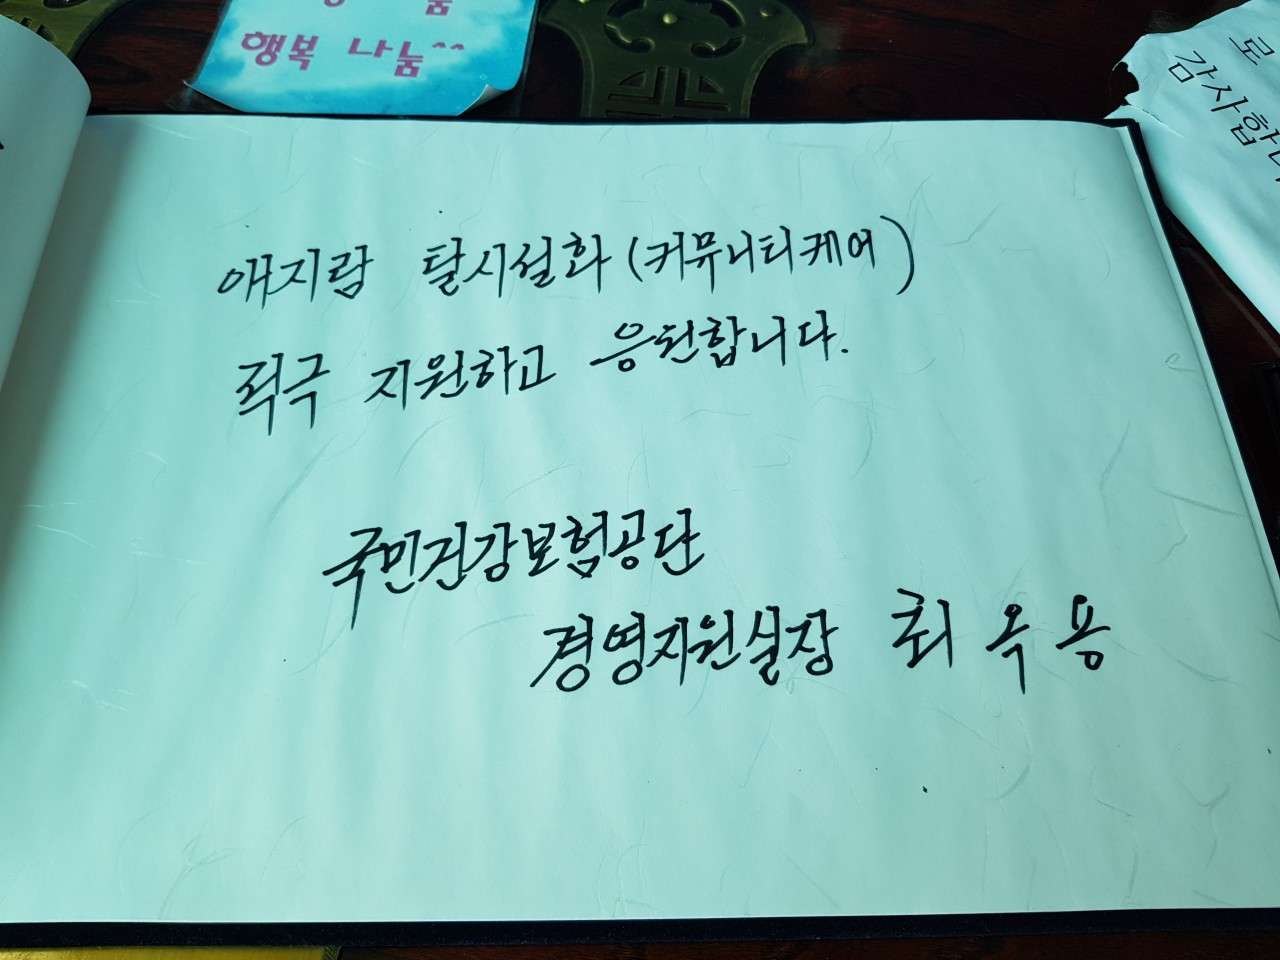 행복 나눔^^
로
감사합니
애지람 탈시설화(커뮤니티케어)
적극 지원하고 응원합니다.
국민건강보험공단
경영지원실장 최옥용